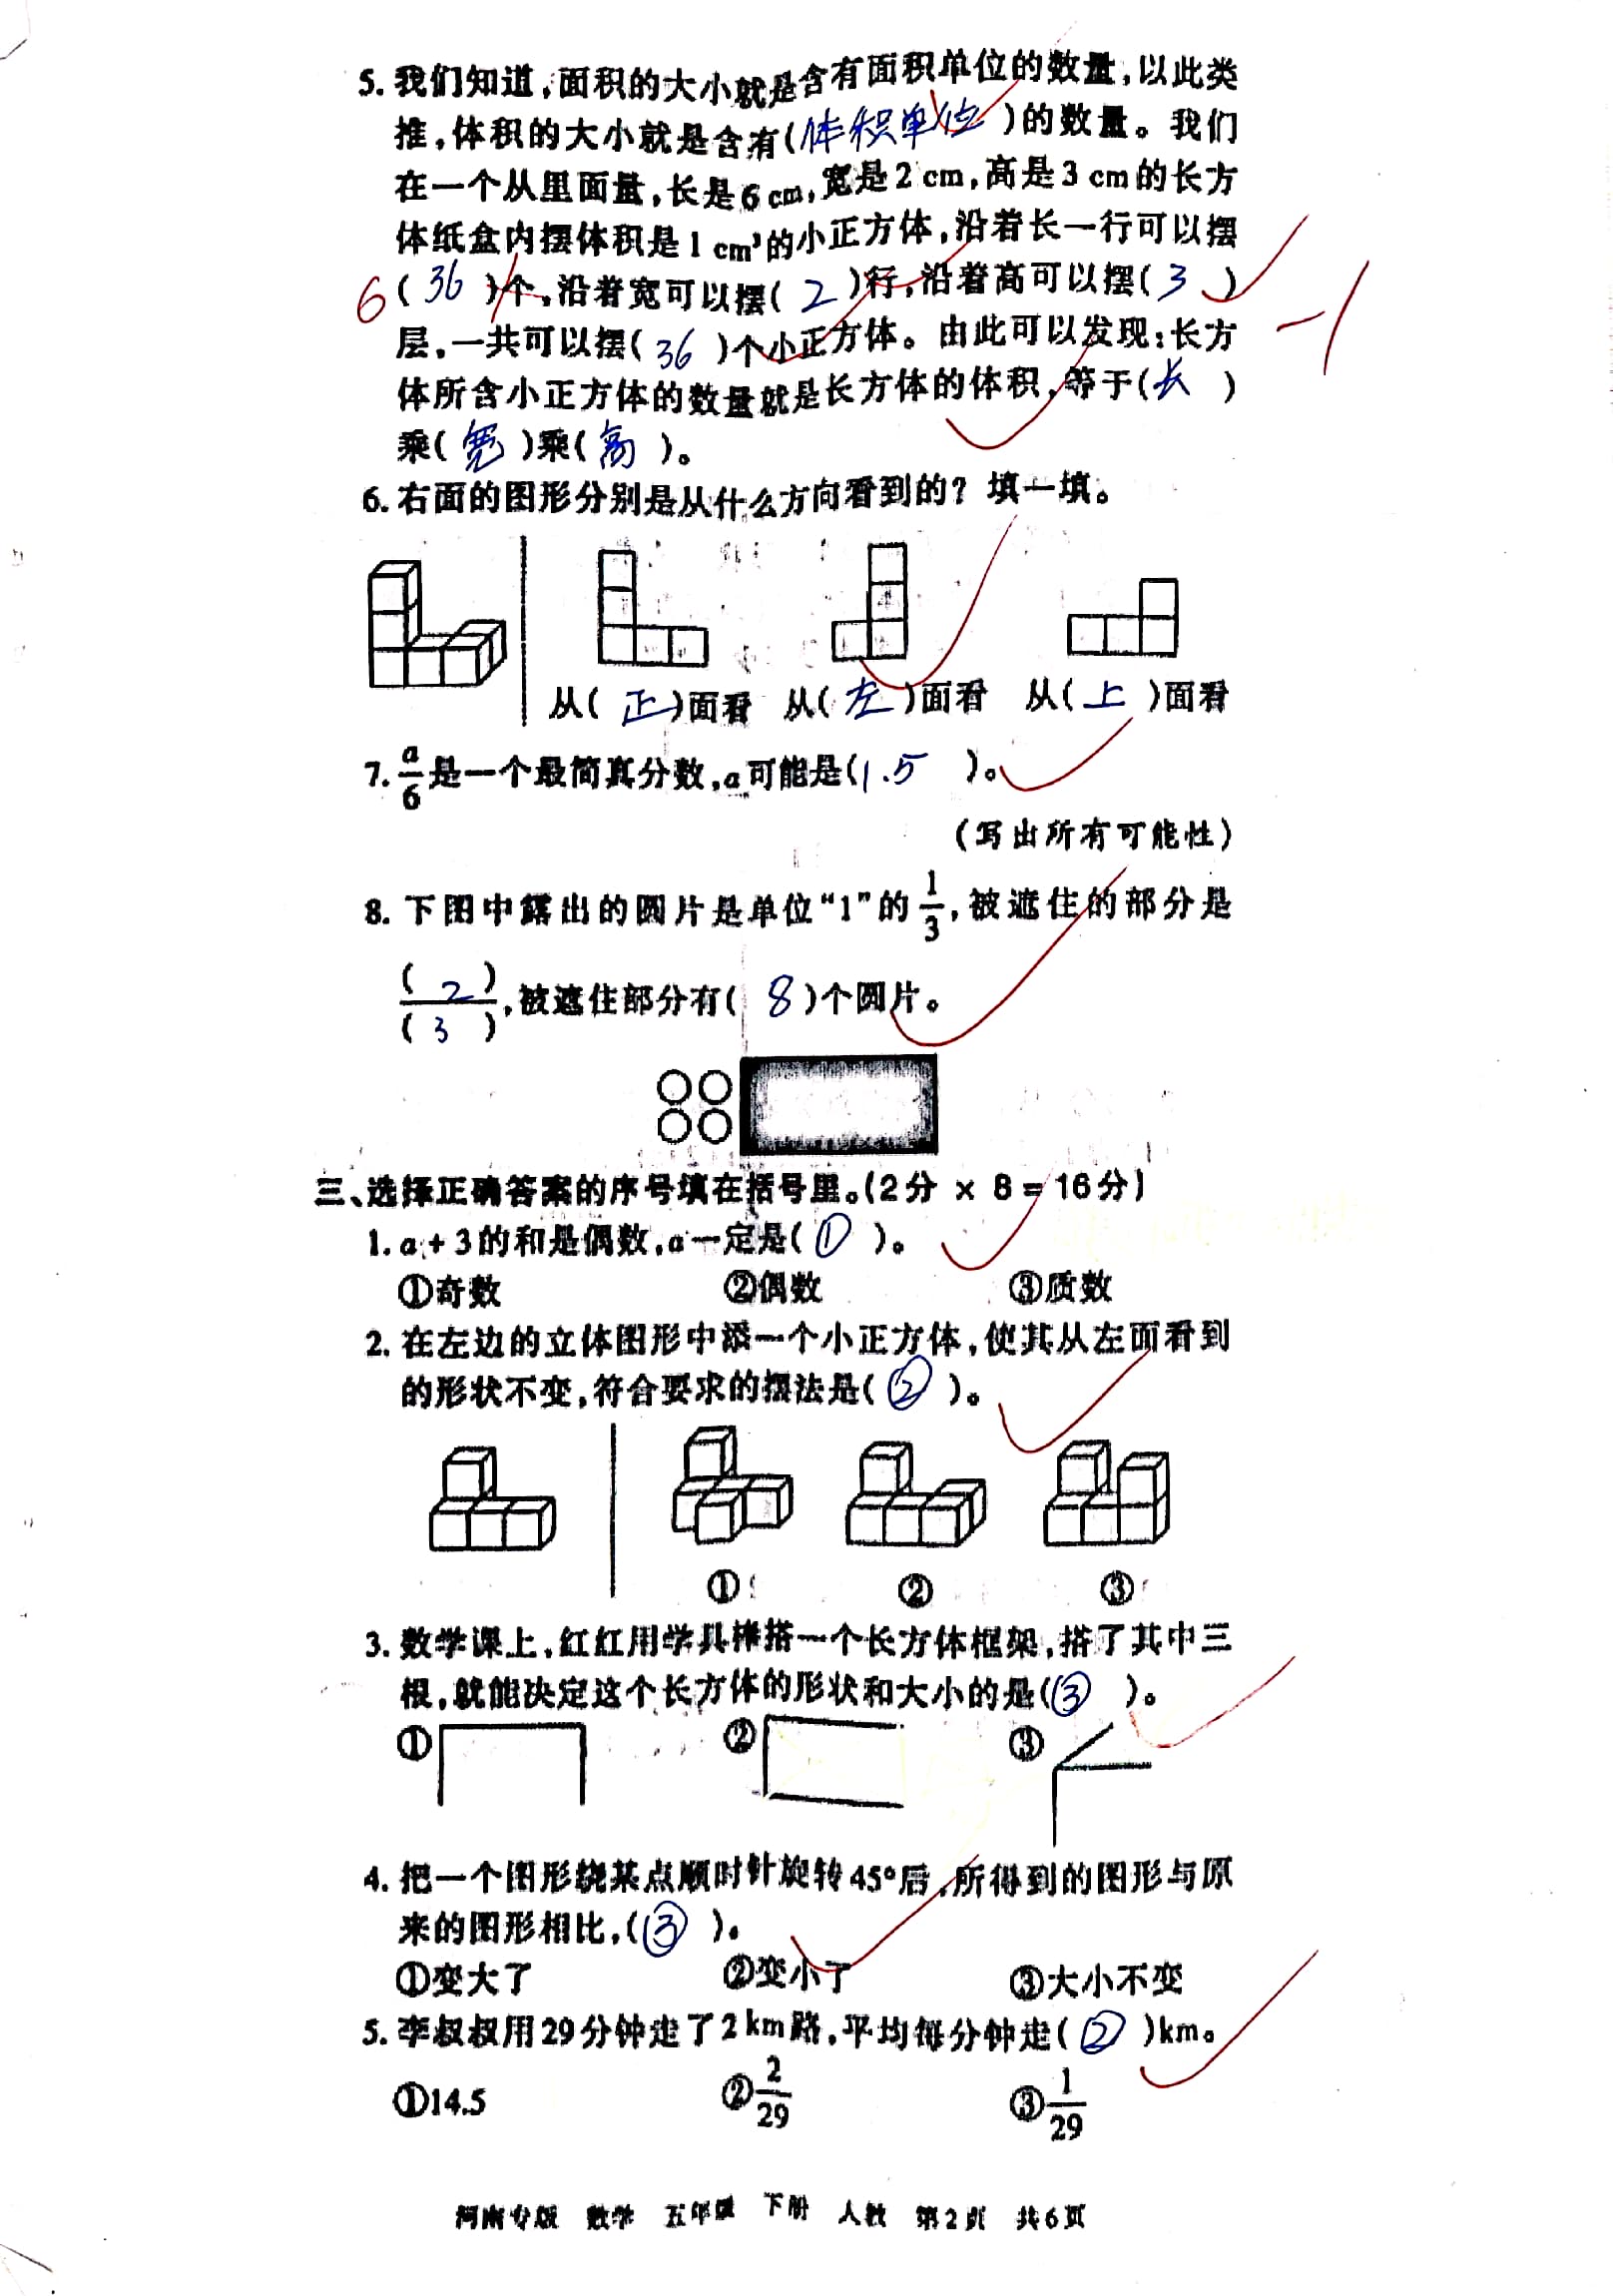 5. 我们知道,面积的大小就是含有面积单位的数量,以此类
推,体积的大小就是含有(体积单位)的数量。我们
在一个从里面量,长是6 cm,宽是2 cm,高是3 cm的长方
体纸盒内摆体积是1 cm³的小正方体,沿着长一行可以摆
6 (36)个,沿着宽可以摆(2)行,沿着高可以摆(3)
层,一共可以摆(36)个小正方体。由此可以发现:长方 -1
体所含小正方体的数量就是长方体的体积,等于(长)
乘(宽)乘(高)。
6. 右面的图形分别是从什么方向看到的?填一填。
从(正)面看 从(左)面看 从(上)面看
7. a/6是一个最简真分数,a可能是(1.5)。
(写出所有可能性)
8. 下图中露出的圆片是单位“1”的1/3,被遮住的部分是
(2)/(3),被遮住部分有(8)个圆片。
三、选择正确答案的序号填在括号里。(2分 × 8 = 16分)
1. a + 3的和是偶数,a一定是(①)。
①奇数 ②偶数 ③质数
2. 在左边的立体图形中添一个小正方体,使其从左面看到
的形状不变,符合要求的摆法是(②)。
① ② ③
3. 数学课上,红红用学具棒搭一个长方体框架,搭了其中三
根,就能决定这个长方体的形状和大小的是(③)。
① ② ③
4. 把一个图形绕某点顺时针旋转45°后,所得到的图形与原
来的图形相比,(③)。
①变大了 ②变小了 ③大小不变
5. 李叔叔用29分钟走了2 km路,平均每分钟走(②)km。
①14.5 ②2/29 ③1/29
河南专版 数学 五年级 下册 人教 第2页 共6页